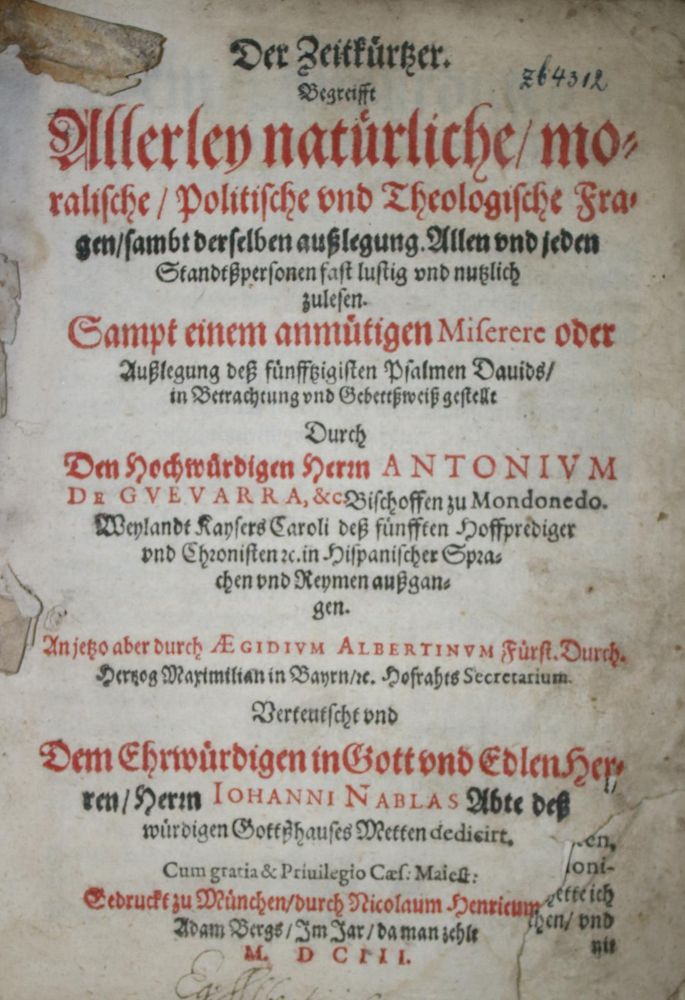 Der Zeitkürtzer.
zb4312
Begreifft
Allerley natürliche/ mo-
ralische/ Politische vnd Theologische Fra-
gen/sambt derselben außlegung. Allen vnd jeden
Standtßpersonen fast lustig vnd nutzlich
zulesen.
Sampt einem anmütigen Miserere oder
Außlegung deß fünfftzigisten Psalmen Dauids/
in Betrachtung vnd Gebettßweiß gestellt
Durch
Den Hochwürdigen Herrn ANTONIVM
DE GVEVARRA, &c. Bischoffen zu Mondonedo.
Weylandt Kaysers Caroli deß fünfften Hoffprediger
vnd Chronisten ꝛc. in Hispanischer Spra-
chen vnd Reymen außgan-
gen.
An jetzo aber durch ÆGIDIVM ALBERTINVM Fürst. Durch.
Hertzog Maximilian in Bayrn/ꝛc. Hofrahts Secretarium.
Verteutscht vnd
Dem Ehrwürdigen in Gott vnd Edlen Her-
ren/ Herrn IOHANNI NABLAS Abte deß
würdigen Gottßhauses Metten dedicirt.
Cum gratia & Priuilegio Cæs: Maiest:
Gedruckt zu München/durch Nicolaum Henricum
Adam Bergs/ Im Jar/ da man zehlt
M. D CIII.
en,
ioni-
ette ich
chen/ vnd
nit